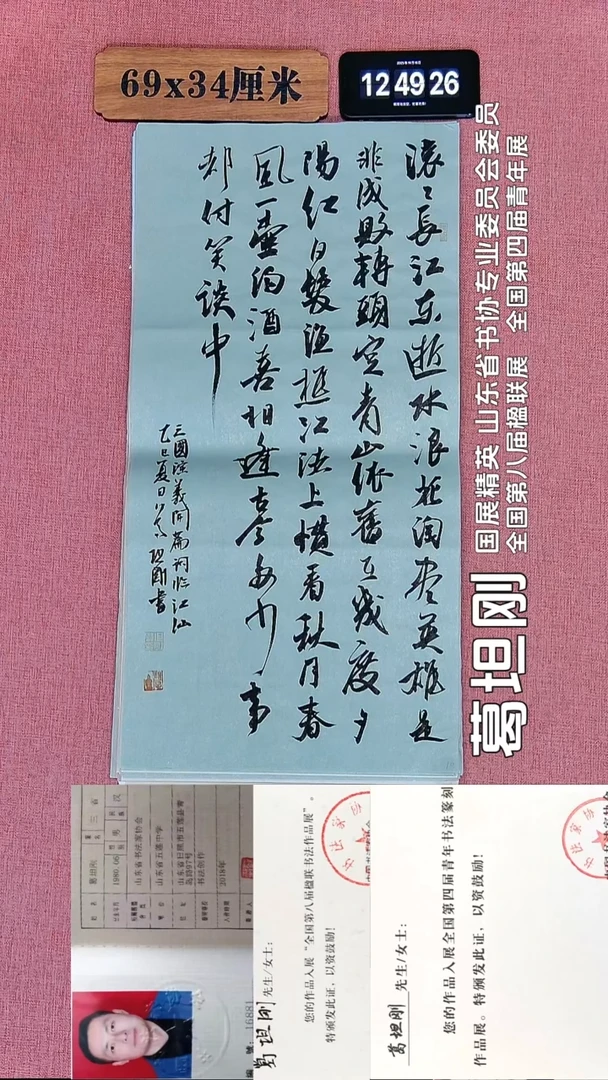 69x34厘米
12 49 26
滚滚长江东逝水浪花淘尽英雄是
非成败转头空青山依旧在几度夕
阳红白发渔樵江渚上惯看秋月春
风一壶浊酒喜相逢古今多少事
都付笑谈中
三國演義開篇词临江仙
乙巳夏日
坦刚書
国展精英 山东省书协专业委员会委员
全国第八届楹联展 全国第四届青年展
葛坦刚
姓名 葛坦刚
1980.06
性别 男
民族 汉
山东省书法家协会
山东省五莲中学
书法创作
2018年
16881
葛坦刚 先生/女士:
您的作品入展“全国第八届楹联书法作品展”。
特颁发此证,以资鼓励!
葛坦刚 先生/女士:
您的作品入展全国第四届青年书法篆刻
作品展。特颁发此证,以资鼓励!